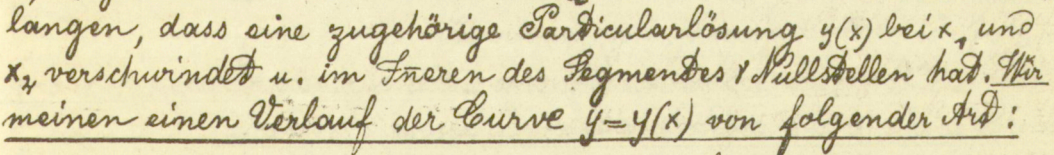 langen, dass eine zugehörige Particularlösung y(x) bei x₁ und
x₂ verschwindet u. im Iñeren des Segmentes r Nullstellen hat. Wir
meinen einen Verlauf der Curve y=y(x) von folgender Art: